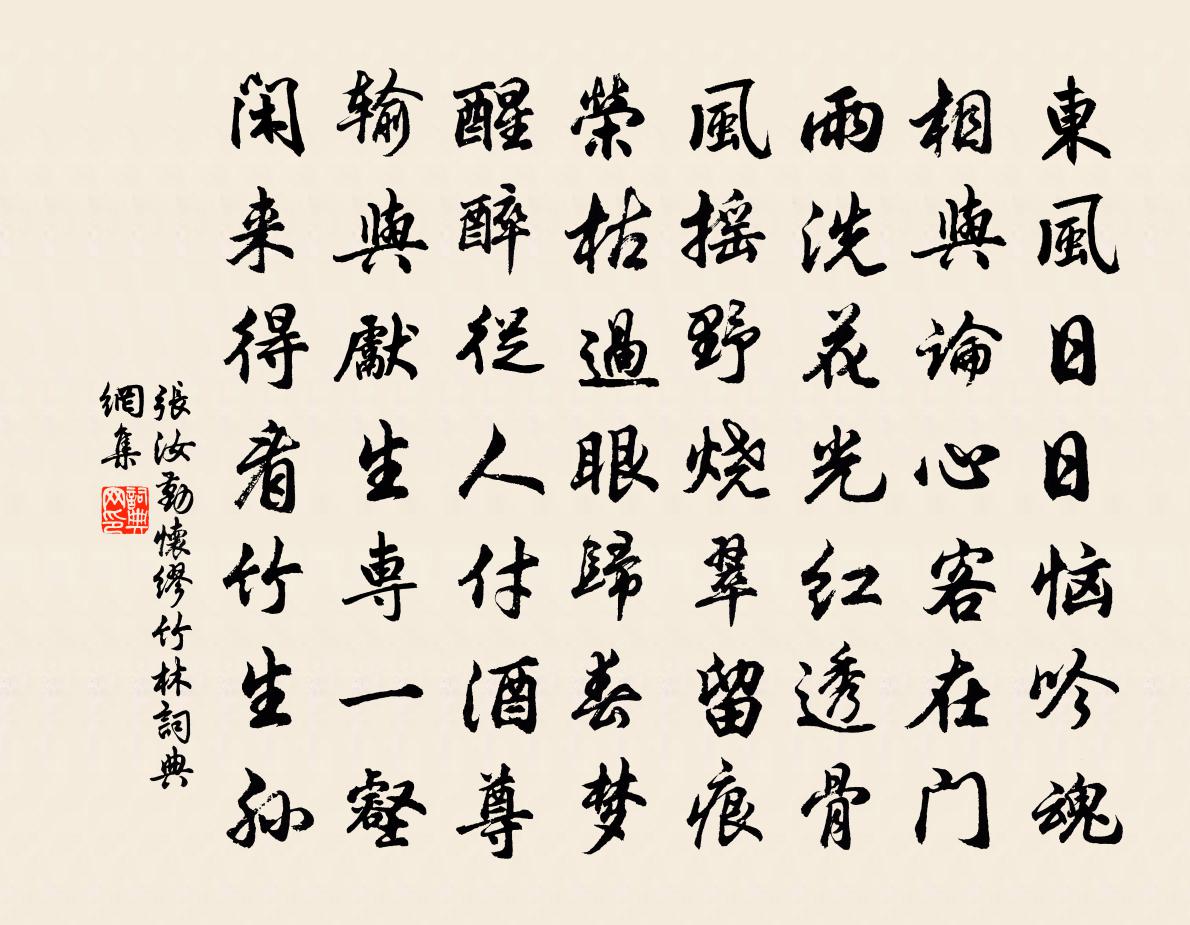 東風日日恼吟魂
相與論心客在门
雨洗花光红透骨
風摇野烧翠留痕
榮枯過眼歸春梦
醒醉從人付酒尊
输與獻生専一壑
闲来得看竹生孙
張汝勤懷繆竹林詞典
網集
詞典
网印